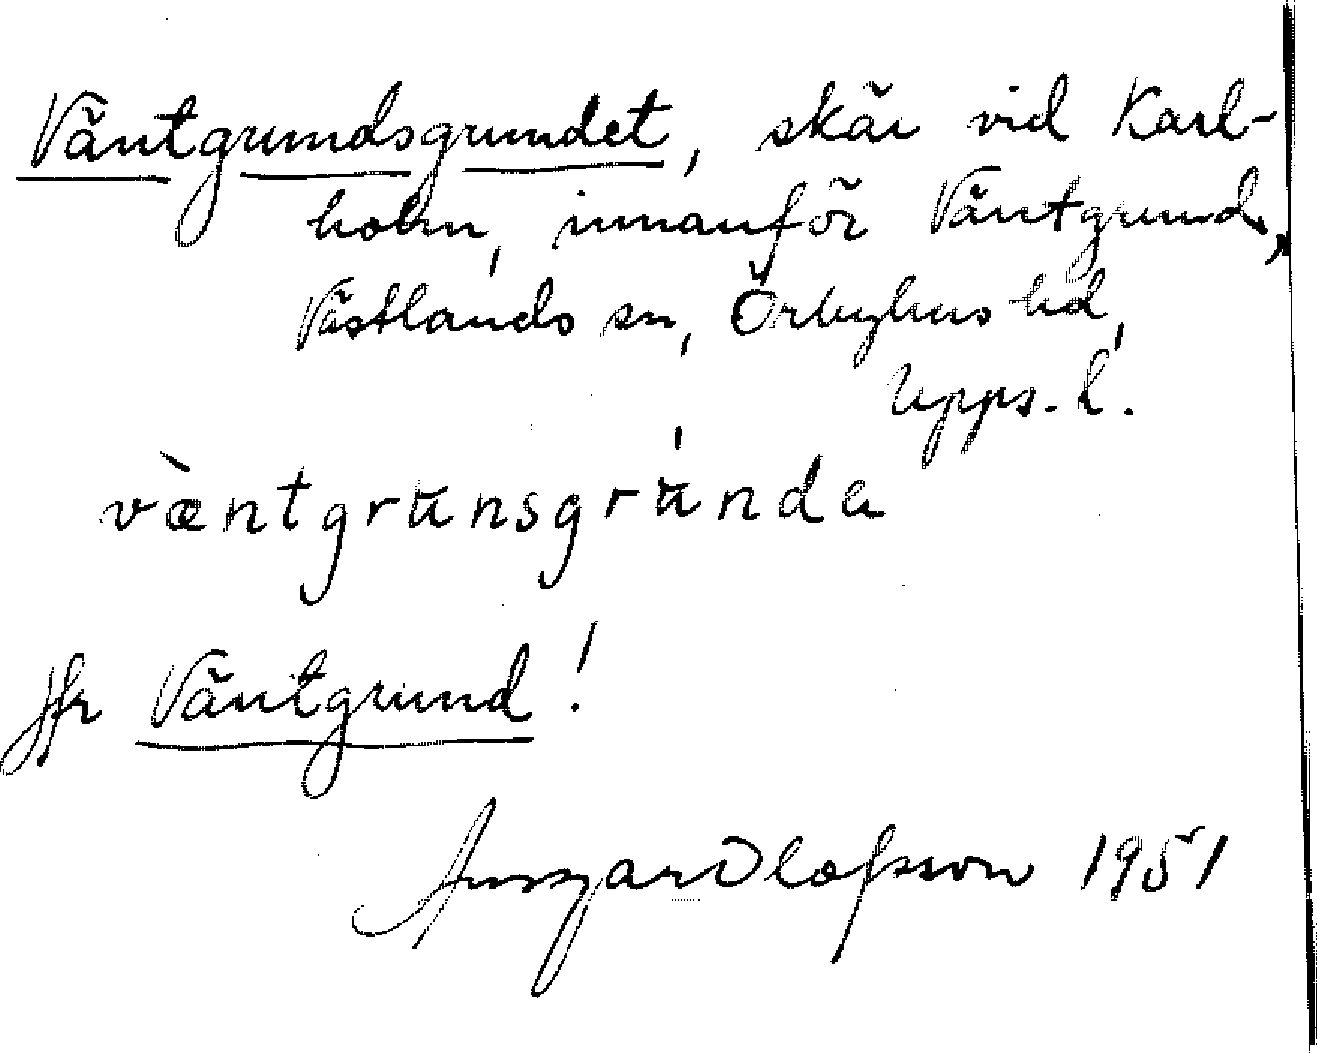 Väntgrundsgrundet, skär vid Karl-
holm, innanför Väntgrund,
Västlands sn, Örbyhus hd,
Upps. l.
væ̀ntgrunsgrúnda
Jfr Väntgrund!
Ansgar Olofsson 1951